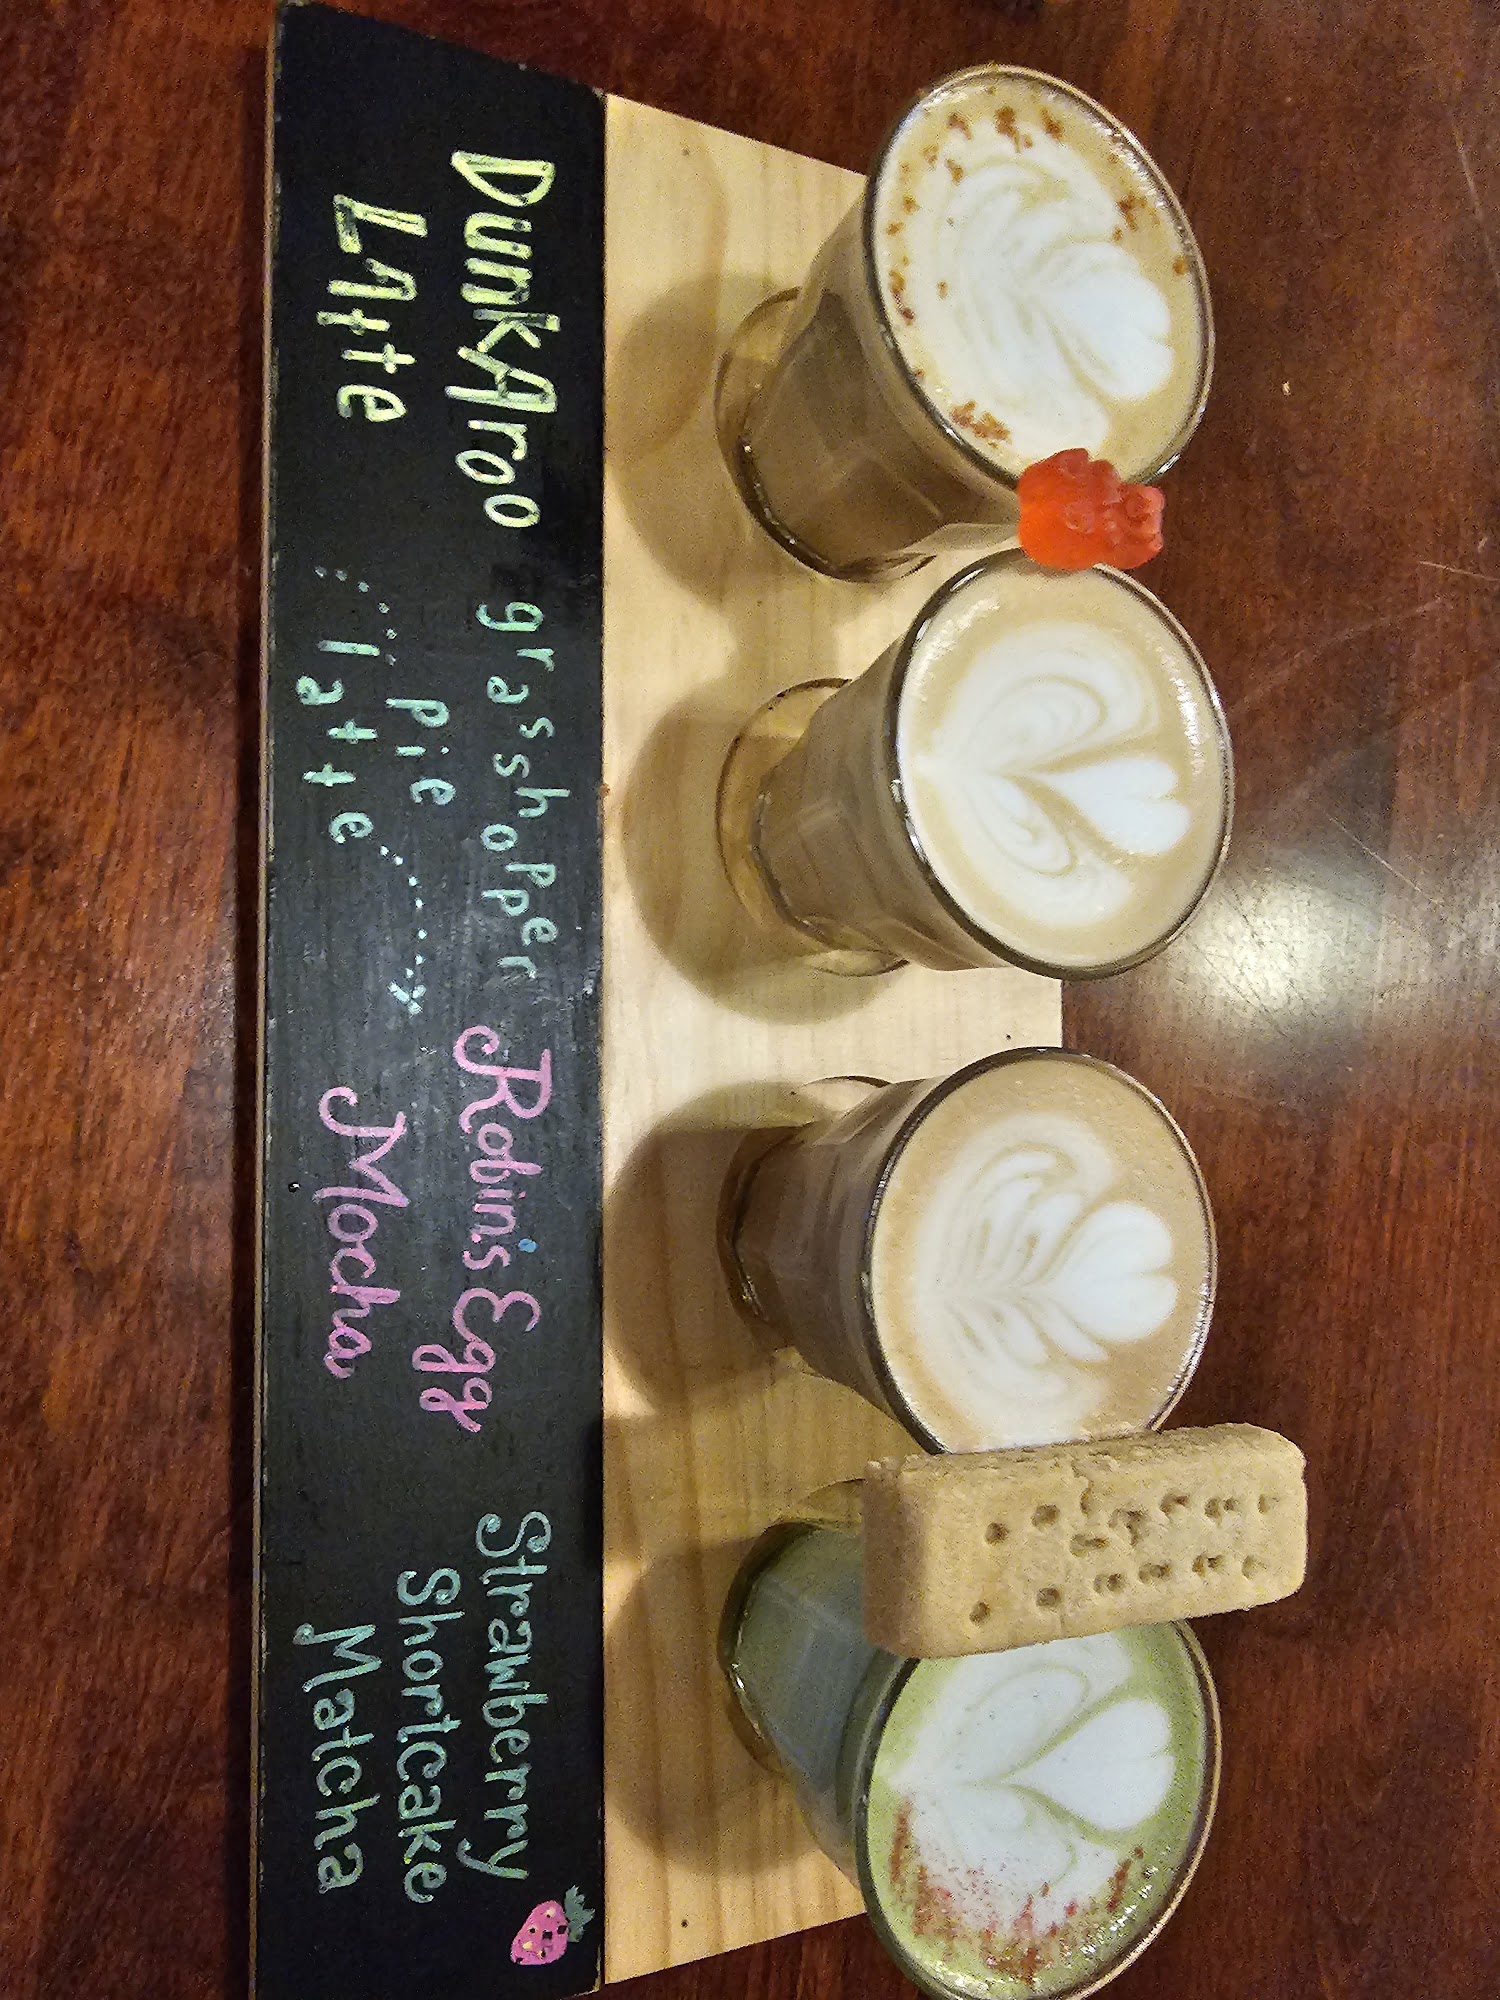 DunkAroo
Latte
grasshopper
pie
latte
Robin's Egg
Mocha
Strawberry
Shortcake
Matcha